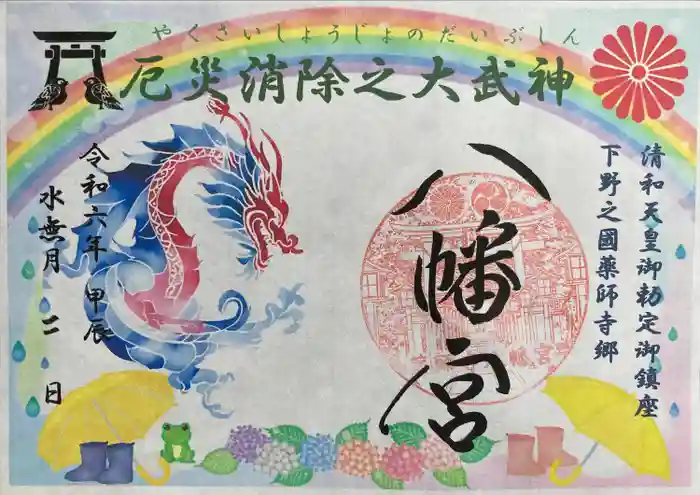 やくさいしょうじょのだいぶしん
厄災消除之大武神
清和天皇御勅定御鎮座
下野之國薬師寺郷
八幡宮
令和六年 甲辰
水無月 二 日